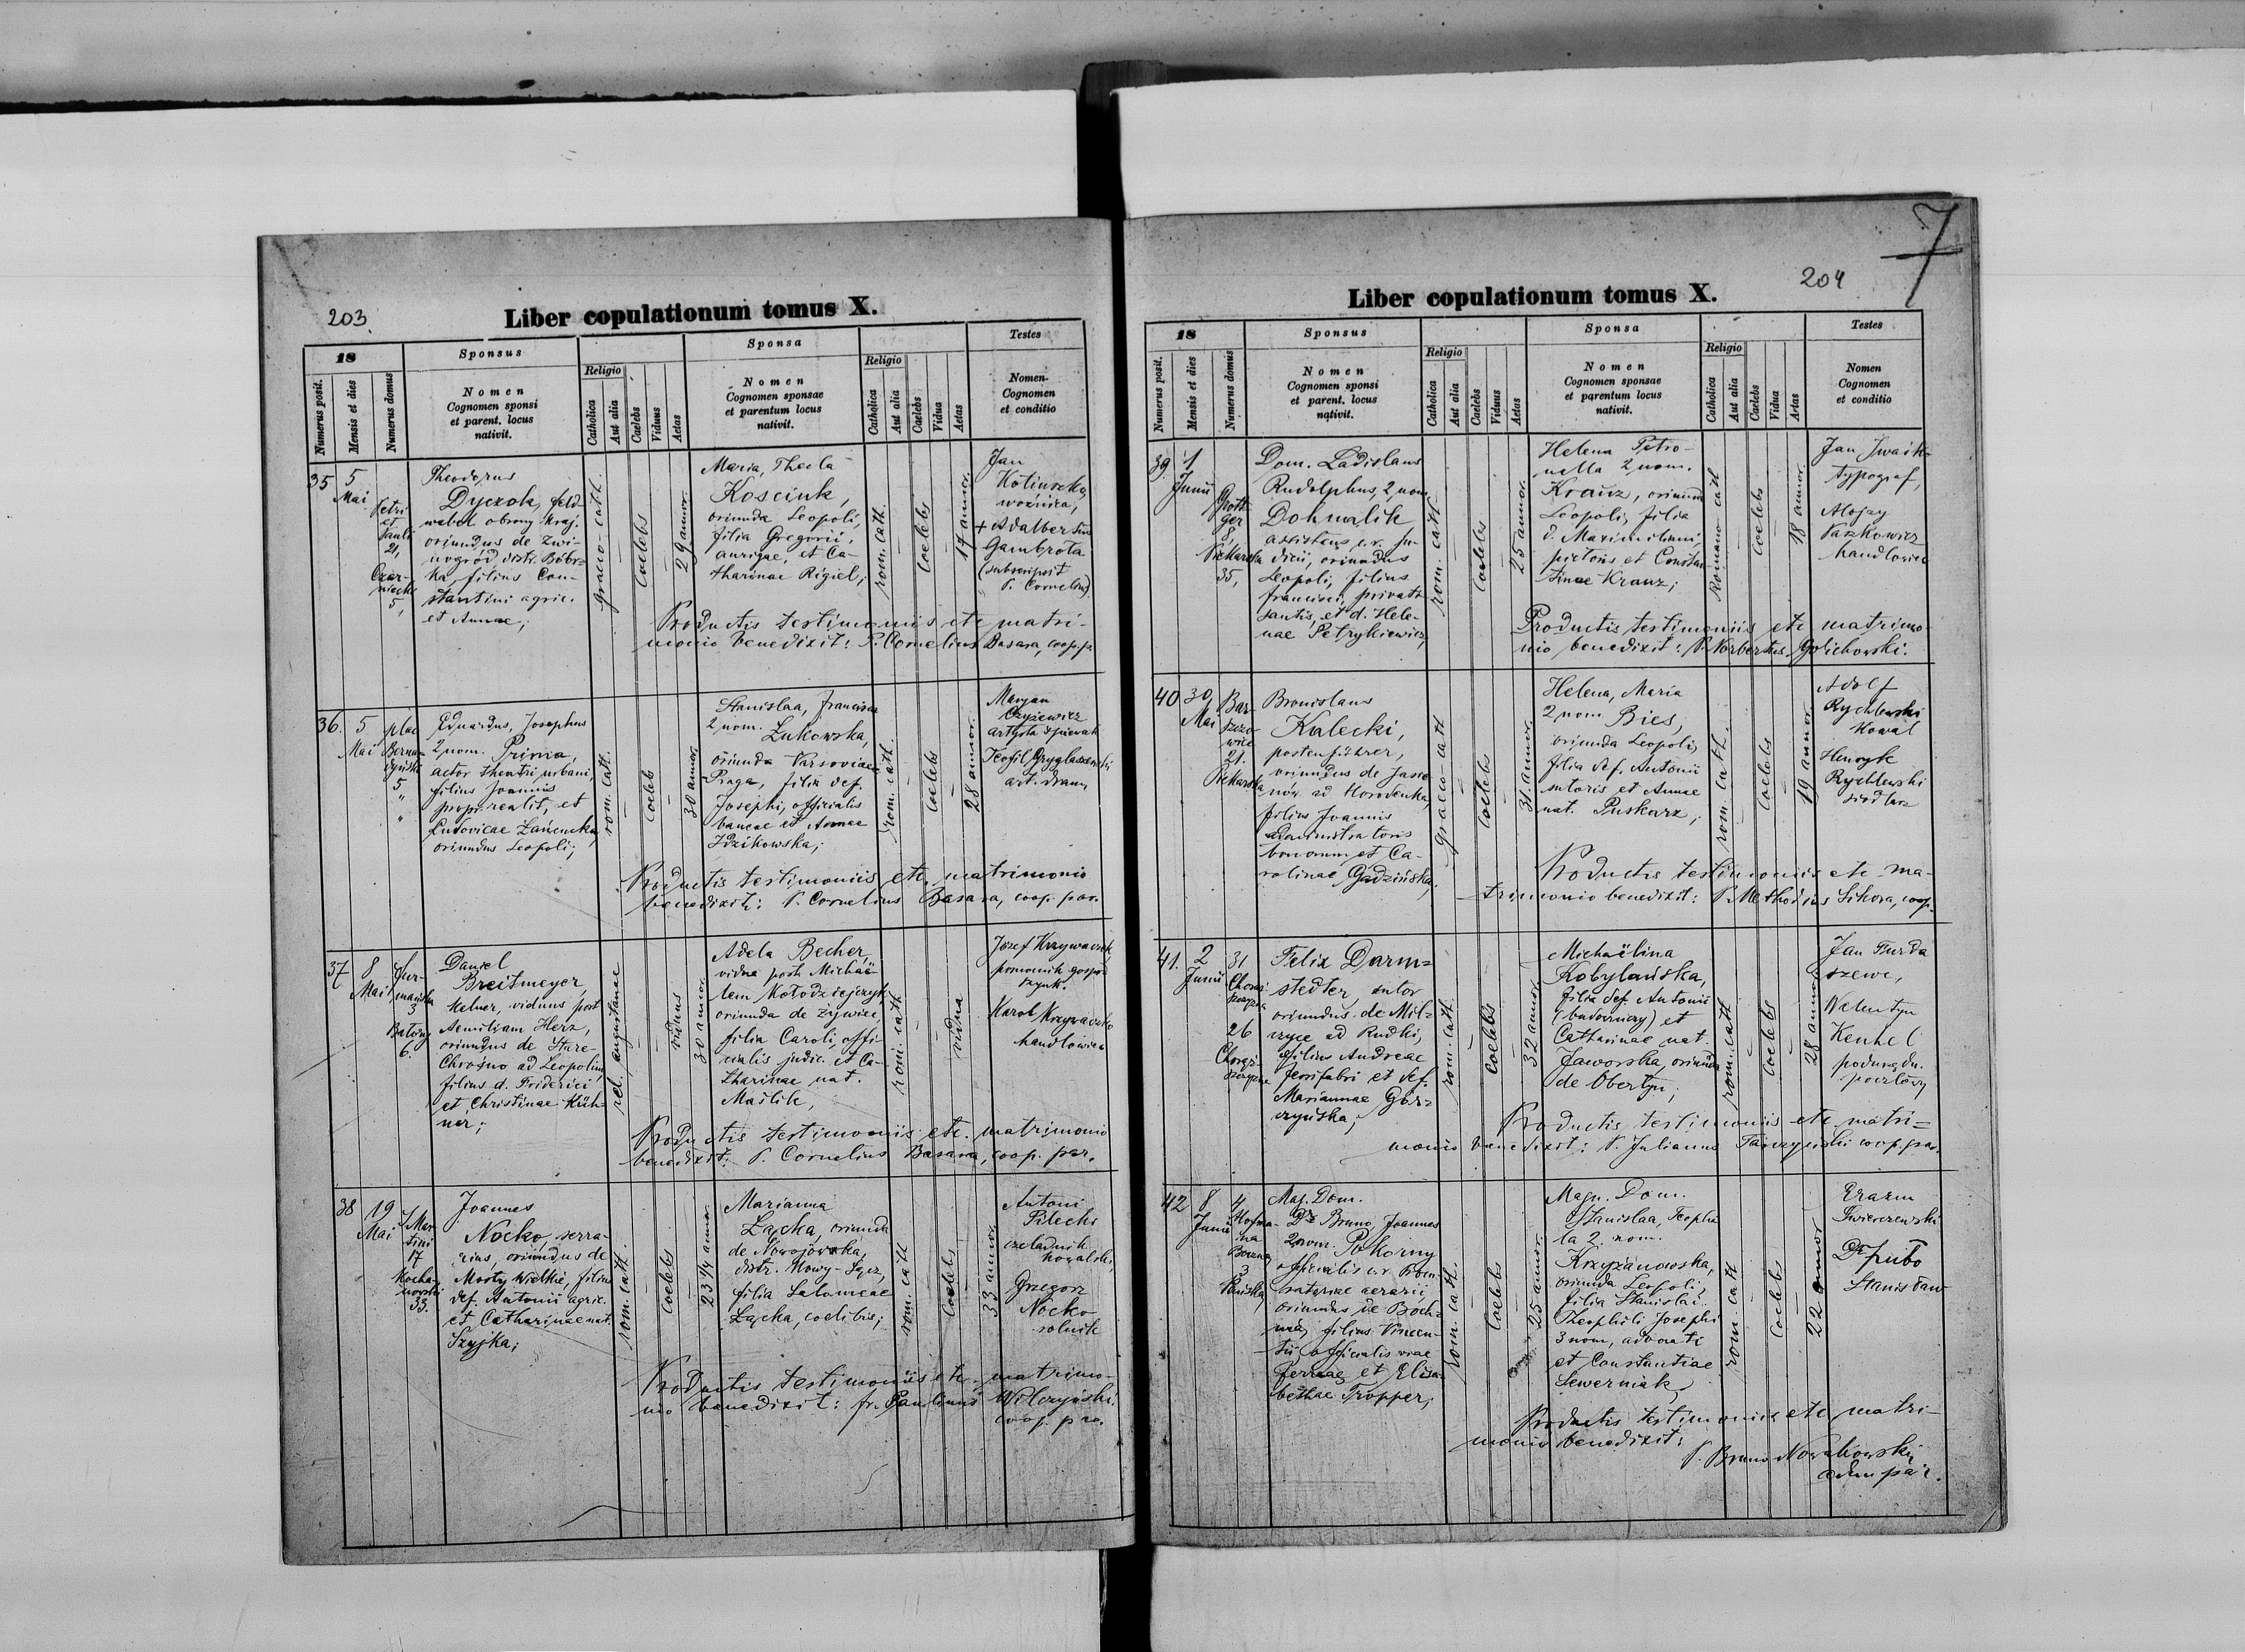 203
Liber copulationum tomus X.
18
Sponsus
Sponsa
Testes
Numerus posit.
Mensis et dies
Numerus domus
Nomen
Cognomen sponsi
et parent. locus
nativit.
Religio
Catholica
Aut alia
Caelebs
Viduus
Aetas
Nomen
Cognomen sponsae
et parentum locus
nativit.
Religio
Catholica
Aut alia
Caelebs
Vidua
Aetas
Nomen
Cognomen
et conditio
35
5
Mai
Petri
et
Pauli
21,
Czar-
niecki
5,
Theodorus
Dyczok, feld
webel obrony kraj.
oriundus de Zwi-
nogród, distr. Bóbr-
ka, filius Con-
stantini agric.
et Annae;
graeco-cath.
coelebs
29 annor.
Maria, Thecla
Kosciuk,
oriunda Leopoli,
filia Gregorii,
aurigae, et Ca-
tharinae Rigiel;
rom. cath.
coelebs
17 annor.
Jan
Kotiuszko,
woźnica,
+ Adalbertus
Gambrota
(subscripsit
P. Cornelius)
Productis testimoniis etc matri-
monio benedixit: P. Cornelius Basara, coop. p.
36.
5
Mai
plac
Bernar-
dyński
5
"
"
Eduardus, Josephus
2 nom. Prima,
actor theatri urbani,
filius Joannis
propr. realit. et
Ludovicae Łańcucka,
oriundus Leopoli;
rom. cath.
coeleb
30 annor.
Stanislaa, Francisca
2 nom. Łukowska,
oriunda Varsoviae
Praga, filia def.
Josephi, officialis
bancae et Annae
Idzikowska;
rom. cath.
coelebs
28 annor.
Maryan
Czyżewicz
artysta śpiewak
Teofil Gryglaszewski
art. dram.
Productis testimoniis etc. matrimonio
benedixit: P. Cornelius Basara, coop. par.
37
8
Mai
Fur-
mańska
3
Batory
6.
Daniel
Breitmeyer,
kelner, viduus post
Aemiliam Herz,
oriundus de Stare-
Chrośno ad Leopolim
filius d. Friderici
et Christinae Küh-
ner;
rel. augustanae
viduus
30 annor.
Adela Becher,
vidua post Michaë-
lem Kołodziejczyk
oriunda de Żywiec,
filia Caroli, offi-
cialis judic. et Ca-
tharinae nat.
Maślik,
rom. cath.
vidua
Józef Krzywaczek
pomocnik gospod
szynk.
Karol Krzywaczek
handlowiec
Productis testimoniis etc. matrimonio
benedixit: P. Cornelius Basara, coop. par.
38
19
Mai
S. Mar-
tini
17
Kocha-
nowski
33.
Joannes
Nocko, serra-
rius, oriundus de
Mosty Wielkie, filius
def. Antonii agric.
et Catharinae nat.
Szyjka;
rom. cath.
coelebs
23 1/4 annor.
Marianna
Łącka, oriunda
de Nawojowska,
distr. Nowy-Sącz,
filia Salomeae
Łącka, coelibis;
rom. cath
coelebs
33 annor.
Antoni
Pilecki
czeladnik
kowalski
Grzegorz
Nocko
rolnik
Productis testimoniis etc. matrimo-
nio benedixit: fr. Paulinus Wilczyński
coop. par.
204
7
Liber copulationum tomus X.
18
Sponsus
Sponsa
Testes
Numerus posit.
Mensis et dies
Numerus domus
Nomen
Cognomen sponsi
et parent. locus
nativit.
Religio
Catholica
Aut alia
Caelebs
Viduus
Aetas
Nomen
Cognomen sponsae
et parentum locus
nativit.
Religio
Catholica
Aut alia
Caelebs
Vidua
Aetas
Nomen
Cognomen
et conditio
39.
1
Junii
Grott-
ger
8,
Piekarska
35,
Dom. Ladislaus
Rudolphus, 2 nom
Dohnalik
assistens c.r. ju-
dicii, oriundus
Leopoli, filius
Francisci, privati-
santis, et d. Hele-
nae Petrykiewicz,
rom. cath.
coelebs
25 annor.
Helena Petro-
nella 2 nom.
Kranz, oriunda
Leopoli, filia
d. Maximiliani
pictoris et Constan
tinae Kranz;
Romano cath
coelebs
18 annor.
Jan
typograf,
Alojzy
Paszkowicz
handlowiec
Productis testimoniis etc matrimo-
nio benedixit: P. Norbertus Golichowski.
40
30
Mai
Bar-
szczo-
wice
21.
Piekarska
Bronislaus
Kalecki,
postenführer,
oriundus de Jasie-
nów ad Horodenka,
filius Joannis
administratoris
bonorum et Ca-
rolinae Gadzińska,
graeco-cath
coelebs
31 annor.
Helena, Maria
2 nom Bies,
oriunda Leopoli,
filia def. Antonii
sutoris et Annae
nat. Puskarz;
rom. cath.
coelebs
19 annor.
Adolf
Rychlewski
Kowal
Henryk
Rychlewski
siodlarz
Productis testimoniis etc ma-
trimonio benedixit: P. Methodius Sikora, coop.
41.
2
Junii
31
Chorąż
szczyzna
26
Chorąż-
szczyzna
Felix Darm-
stedter, sutor
oriundus de Mil-
czyce ad Rudki,
filius Andreae
ferrifabri et def.
Mariannae Gór-
czyńska;
rom. cath.
coelebs
32 annor.
Michaëlina
Kobylańska,
filia def. Antonii
(budowniczy) et
Catharinae nat.
Jaworska, oriunda
de Obertyn;
rom. cath
coelebs
28 annor.
Jan Furda
szewc,
Walentyn
Kenhel
podurzędn.
pocztowy
Productis testimoniis etc matri-
monio benedixit: P. Julianus Tarczyński coop. par.
42
8
Junii
4
Hofma-
na
Boczna
3
Pańska
Mag. Dom.
Dr Bruno, Joannes
2 nom. Pokorny
officialis c.r. Procu-
raturae aerarii,
oriundus de Boch-
nia, filius Vincen-
tii officialis viae
ferreae et Elisa-
bethae Tropper;
rom. cath.
coelebs
25 annor.
Magn. Dom.
Stanislaa, Teophi
la 2. nom.
Krzyżanowska,
oriunda Leopoli,
filia Stanislai
Theophili Josephi
3 nom, advocati
et Constantiae
Sewerniak,
rom. cath
coelebs
22 annor
Erazm
Świerczewski
Stanisław
Productis testimoniis etc matri-
monio benedixit:
P. Bruno Nowakowski
adm par.